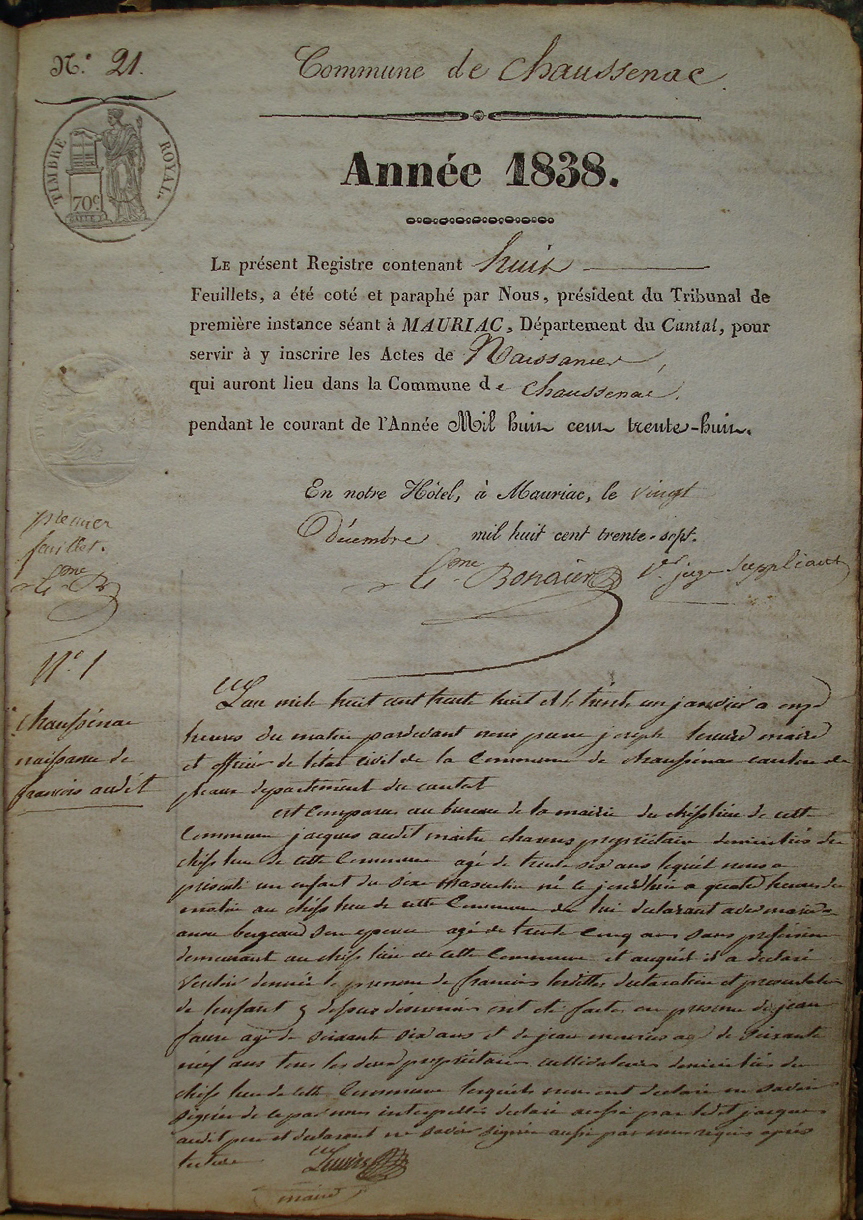 N.° 21.
Commune de Chaussenac
TIMBRE ROYAL.
70c
Année 1838.
LE présent Registre contenant huit
Feuillets, a été coté et paraphé par Nous, président du Tribunal de
première instance séant à MAURIAC, Département du Cantal, pour
servir à y inscrire les Actes de Naissances,
qui auront lieu dans la Commune de Chaussenac,
pendant le courant de l'Année Mil huit cent trente-huit.
En notre Hôtel, à Mauriac, le vingt
Décembre mil huit cent trente-sept.
premier
feuillet.
1er juge Suppléant
N.° 1
chaussénac
naissance de
francois audit
L'an mile huit cent trente huit et le trente un janvier a onze
heures du matin pardevant nous pierre joseph maire
et officier de l'état civil de la Commune de chaussénac canton de
pleaux departement du cantal
est Comparus au bureau de la mairie du cheflieu de cette
Commune jacques audit propriétaire domiciliés du
chef lieu de cette Commune agé de trente six ans lequel nous a
présenté un enfant du sexe masculin né ce jourdhui a quatre heures du
matin au chef lieu de cette Commune de lui declarant
anne bergeaud son epouse agé de trente Cinq ans sans profession
demeurant au chef lieu de cette Commune et auquel il a declaré
vouloir donner le prenom de francois lesdittes declaration et presentation
de l'enfant ont eté faites en presence de jean
faure agé de soixante six ans et de jean agé de soixante
neuf ans tous les deux propriétaires cultivateurs domiciliés du
chef lieu de cette Commune lesquels nous ont declaré ne savoir
signer de ce par nous interpellés declaré aussi par ledit jacques
audit pere et declarant ne savoir signer aussi par nous requis après
lecture
maire